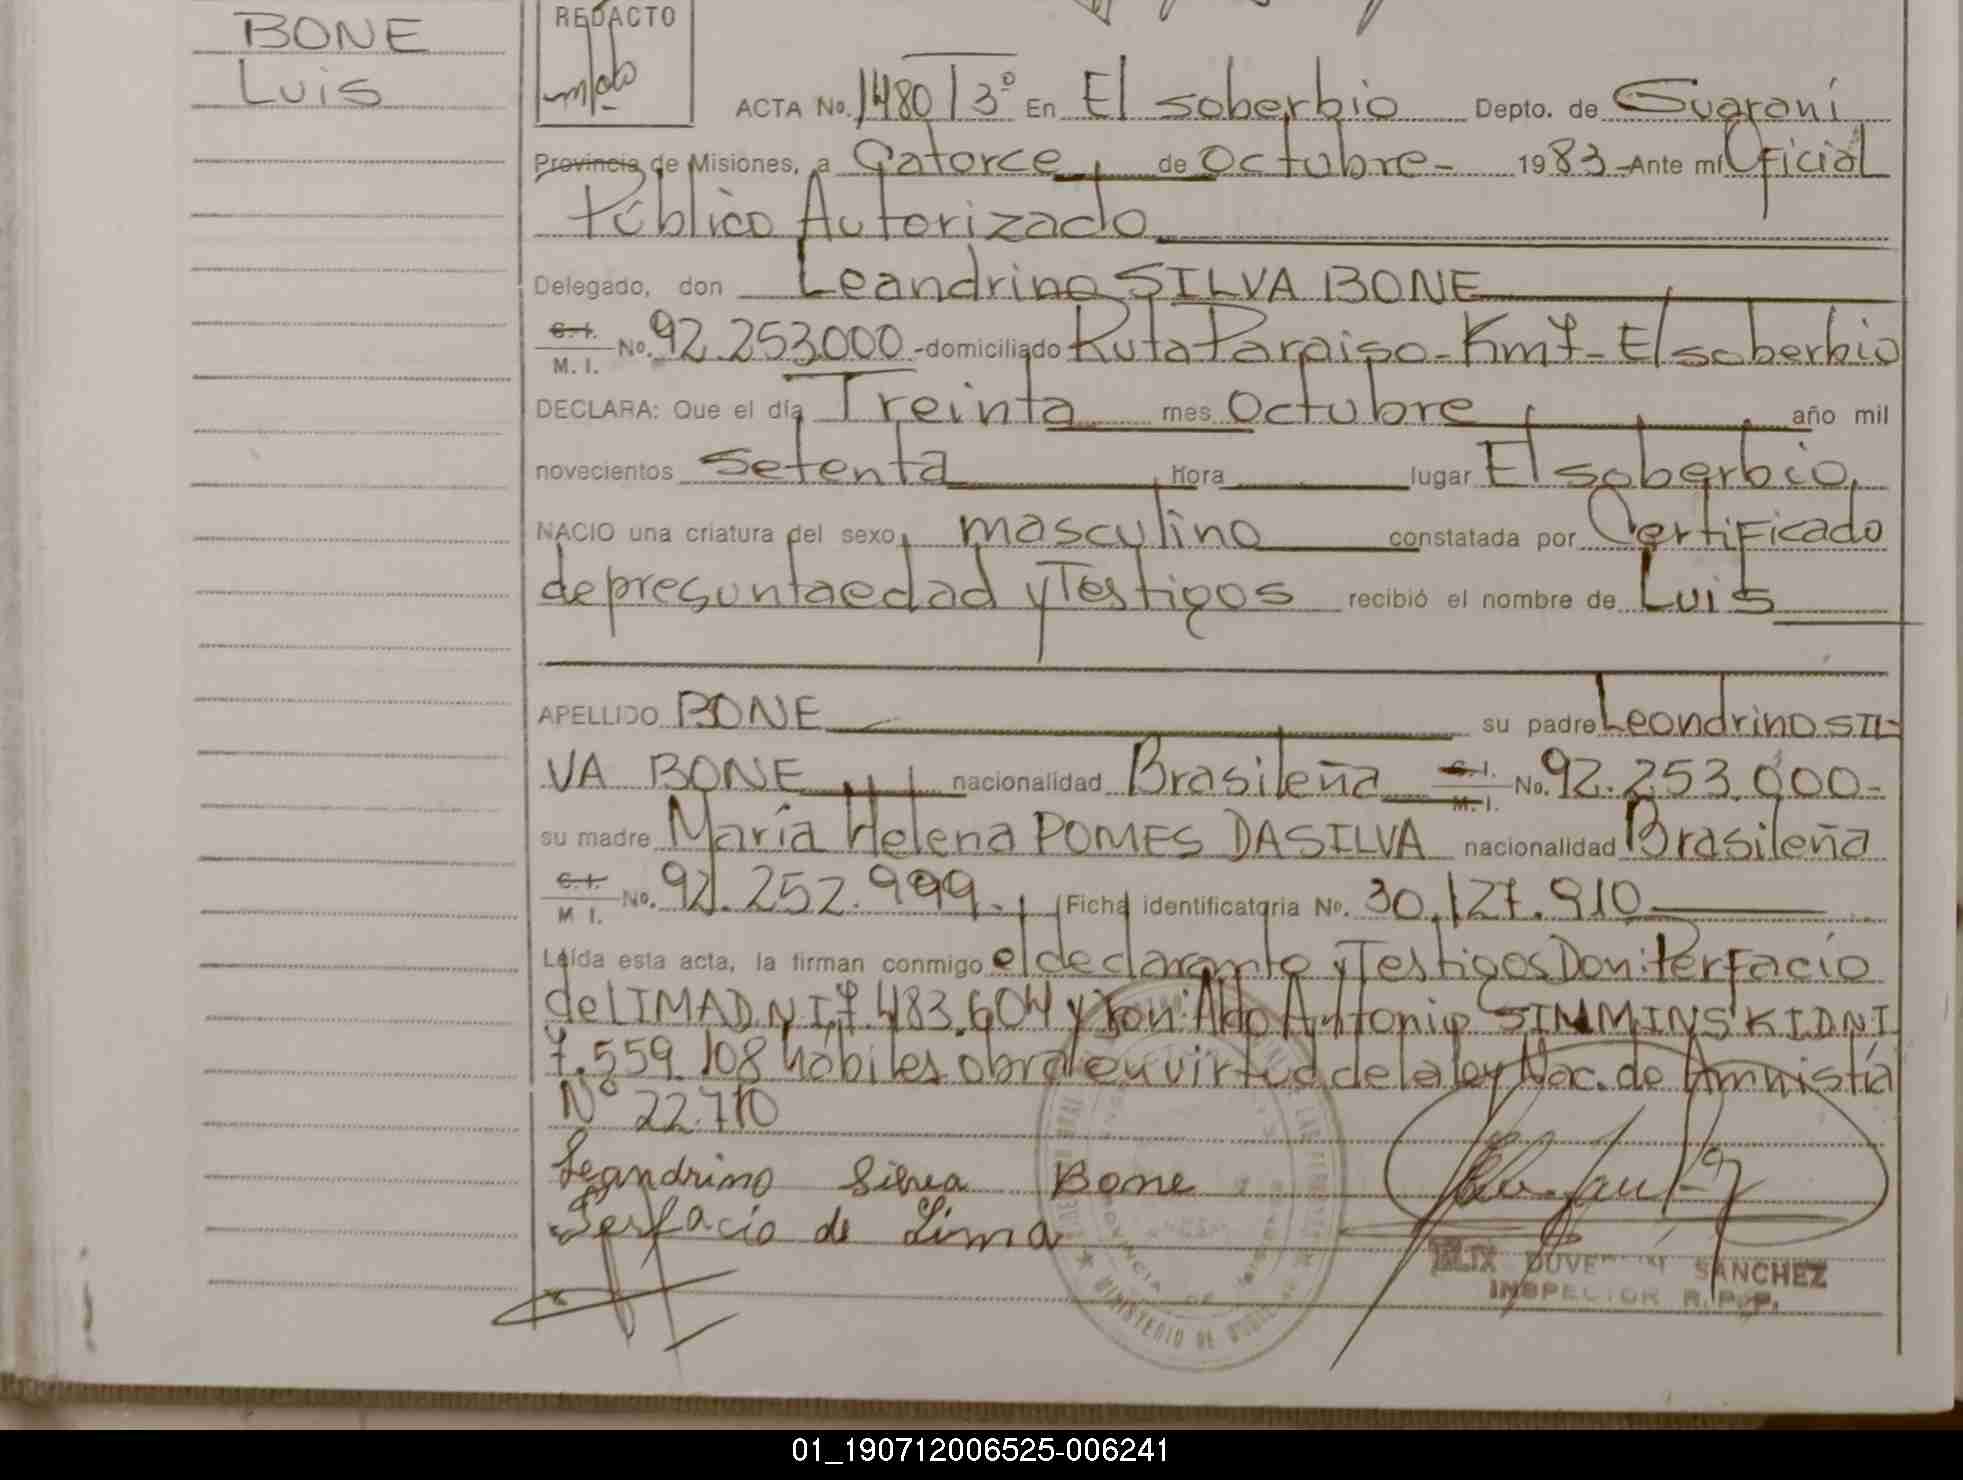 BONE
Luis
REDACTO
ACTA No. 1480 / 3° En El soberbio Depto. de Guaraní
Provincia de Misiones, a Catorce de Octubre - 1983 - Ante mí Oficial
Público Autorizado
Delegado, don Leandrino SILVA BONE
C.I. M. I. No. 92.253000 - domiciliado Ruta Paraiso - Km 7 - El soberbio
DECLARA: Que el día Treinta mes Octubre año mil
novecientos setenta Hora lugar El soberbio,
NACIO una criatura del sexo masculino constatada por Certificado
de presunta edad y Testigos recibió el nombre de Luis
APELLIDO BONE su padre Leondrino SIL-
VA BONE nacionalidad Brasileña C.I. M.I. No. 92.253.000-
su madre María Helena POMES DASILVA nacionalidad Brasileña
C.I. M I. No. 92.252.999. Ficha identificatoria No. 30.127.910
Leída esta acta, la firman conmigo el declarante y Testigos Don: Perfacio
de LIMA D.N.I. 7.483.604 y Don: Aldo Antonio SIMMINSKI DNI
7.559.108 hábiles obra en virtud de la ley Nac. de Amnistía
N° 22.710
Leandrino Silva Bone
Perfacio de Lima
SANCHEZ
INSPECTOR R.P.P.
PROVINCIA DE
MINISTERIO DE
01_190712006525-006241